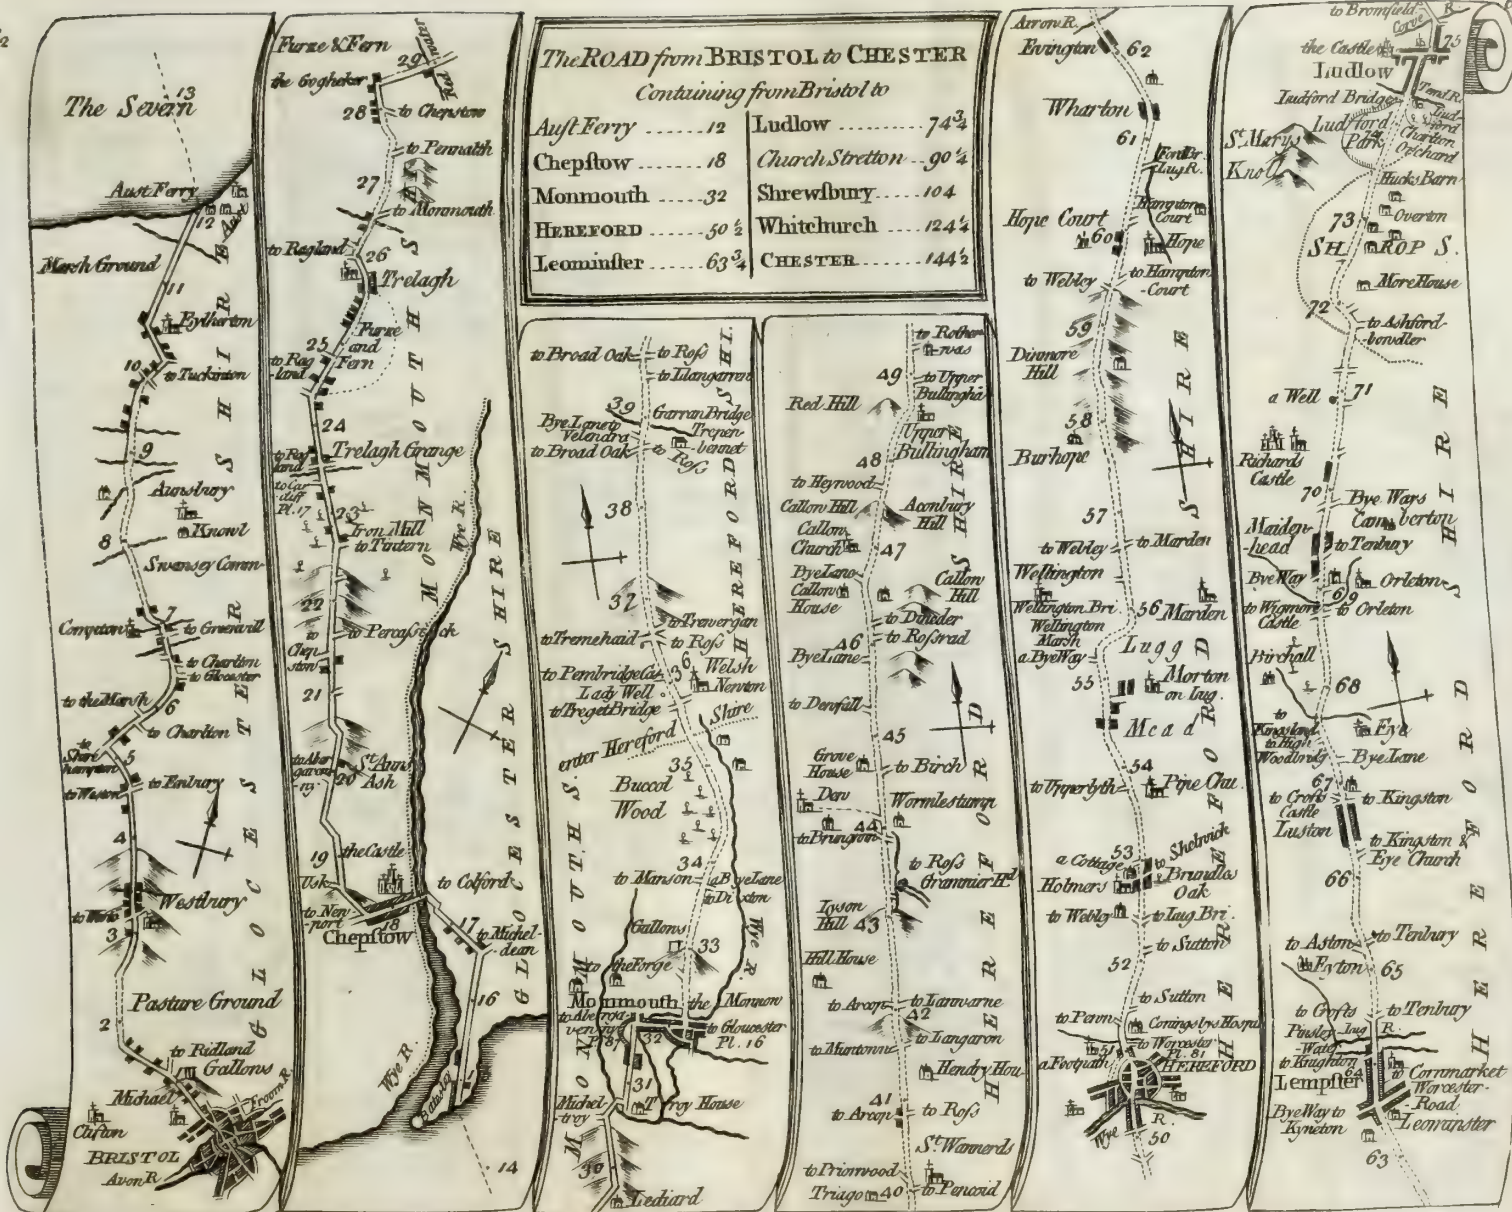 The ROAD from BRISTOL to CHESTER
Containing from Bristol to
Aust Ferry ...... 12
Chepstow ....... 18
Monmouth ..... 32
HEREFORD ..... 50 1/2
Leominster ..... 63 3/4
Ludlow ......... 74 3/4
Church Stretton .. 90 1/4
Shrewsbury ..... 104
Whitchurch ..... 124 1/4
CHESTER ......... 144 1/2
The Severn
13
Aust Ferry
12
Marsh Ground
11
Eylherton
10
to Tuckinton
9
Aunsbury
Knowl
8
Swansey Comm-
7
Compton
to Greenvill
to Charlton
to Glocester
to the Marsh
6
to Charlton
to Shire hampton
5
to Enbury
to Weston
4
Westbury
3
Pasture Ground
2
to Ridland
Gallows
Michael
Froom R.
Clifton
BRISTOL
Avon R.
GLOCESTER SHIRE
Furze & Fern
29
the Gogheker
28
to Chepstow
to Pennalth
27
to Monmouth
to Ragland
26
Trelagh
25
Furze and Fern
to Rag land
24
Trelagh Grange
to Rag land
to Cardiff Pl. 17
23
Iron Mill
to Tintern
22
to Chepston
21
to Abergavenny
20
St. Anns Ash
19
the Castle
Usk
to Newport
18
Chepstow
to Colford
17
to Micheldean
16
Wye R.
Wye R.
14
MONMOUTH SHIRE
GLOCESTER SHIRE
to Broad Oak
to Ross
to Llangarren
39
Garran Bridge
Bye Lane to Velendra
Trepenbennet
to Broad Oak
to Ross
38
37
to Trevergan
to Tremehaid
to Ross
36
to Pembridge Cas
Welsh Newton
Lady Well
to Treget Bridge
enter Hereford Shire
35
Buccol Wood
34
to Manson
a Bye Lane
to Dixton
Gallows
33
to the Forge
Wye R.
Monmouth
the Monnow
to Abergavenny Pl. 87
32
to Gloucester Pl. 16
31
Micheltroy
Troy House
30
Lediard
MONMOUTH S.
HEREFORD SHI.
to Rotherwas
49
to Upper Bullingha
Red Hill
Upper Bullingham
48
to Heywood
Callow Hill
Aconbury Hill
Callow Church
47
Bye Lane
Callow House
Callow Hill
to Dineder
46
to Ross rad
Bye Lane
to Dewfall
45
Grove House
to Birch
Dew
Wormlestump
44
to Brungwin
to Ross
Grannier Hd.
Lyson Hill
43
Hill House
to Arcop
to Lanwarne
42
to Langaron
to Muntonn
Hendry Hou
41
to Arcop
to Ross
St. Wannerds
to Priorwood
Triago
40
to Pencoid
HEREFORD SHIRE
Arrow R.
Evington
62
Wharton
61
Ford Br.
Lug R.
Hampton Court
Hope Court
60
Hope
to Webley
to Hampton Court
59
Dinmore Hill
58
Burhope
57
to Webley
to Marden
Wellington
Wellington Bri.
56
Marden
Wellington Marsh
Lugg
a Bye Way
55
Morton on Lug.
Mead
54
to Upperlyth
Pipe Chu.
a Cottage
53
to Shelwick
Holmers
Brundles Oak
to Webley
to Lug Bri.
to Sutton
52
to Sutton
to Penn
Coningsbys Hospi
to Worcester Pl. 81
a Footpath
51
HEREFORD
Wye R.
50
HEREFORD SHIRE
to Bromfield
Corve R.
the Castle
75
Ludlow
Ludford Bridge
Temd R.
Ludford
Ludford Park
74
Charlton Orchard
St. Marys Knoll
Hucks Barn
73
Overton
SHROP S.
More House
72
to Ashford bowdler
71
a Well
Richards Castle
70
Bye Ways
Camberton
Maidenhead
to Tenbury
Bye Way
Orleton
69
to Wigmore Castle
to Orleton
Birchall
68
to Kingsland
Eye
to High Woodbridg
Bye Lane
67
to Crofts Castle
to Kingston
Luston
to Kingston & Eye Church
66
to Aston
to Tenbury
Eyton
65
to Crofts
to Tenbury
Pinsley Water
Lug R.
to Knighton
64
to Cornmarket
Lempster
Worcester Road
Bye Way to Kyneton
Leominster
63
HEREFORD SHIRE